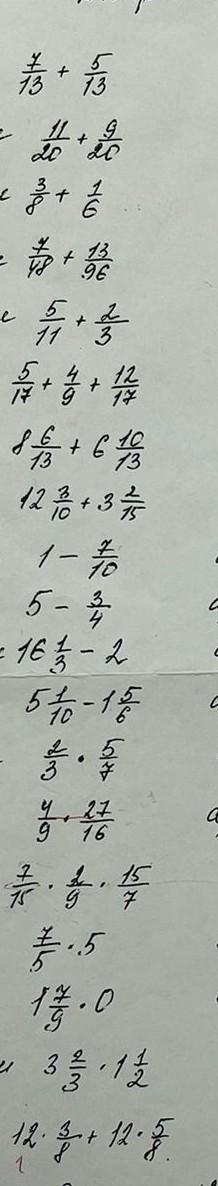 7/13 + 5/13
11/20 + 9/20
3/8 + 1/6
7/48 + 13/96
5/11 + 2/3
5/17 + 4/9 + 12/17
8 6/13 + 6 10/13
12 3/10 + 3 2/15
1 - 7/10
5 - 3/4
16 1/3 - 2
5 1/10 - 1 5/6
2/3 · 5/7
4/9 · 27/16
7/15 · 2/9 · 15/7
7/5 · 5
1 7/9 · 0
3 2/3 · 1 1/2
12 · 3/8 + 12 · 5/8